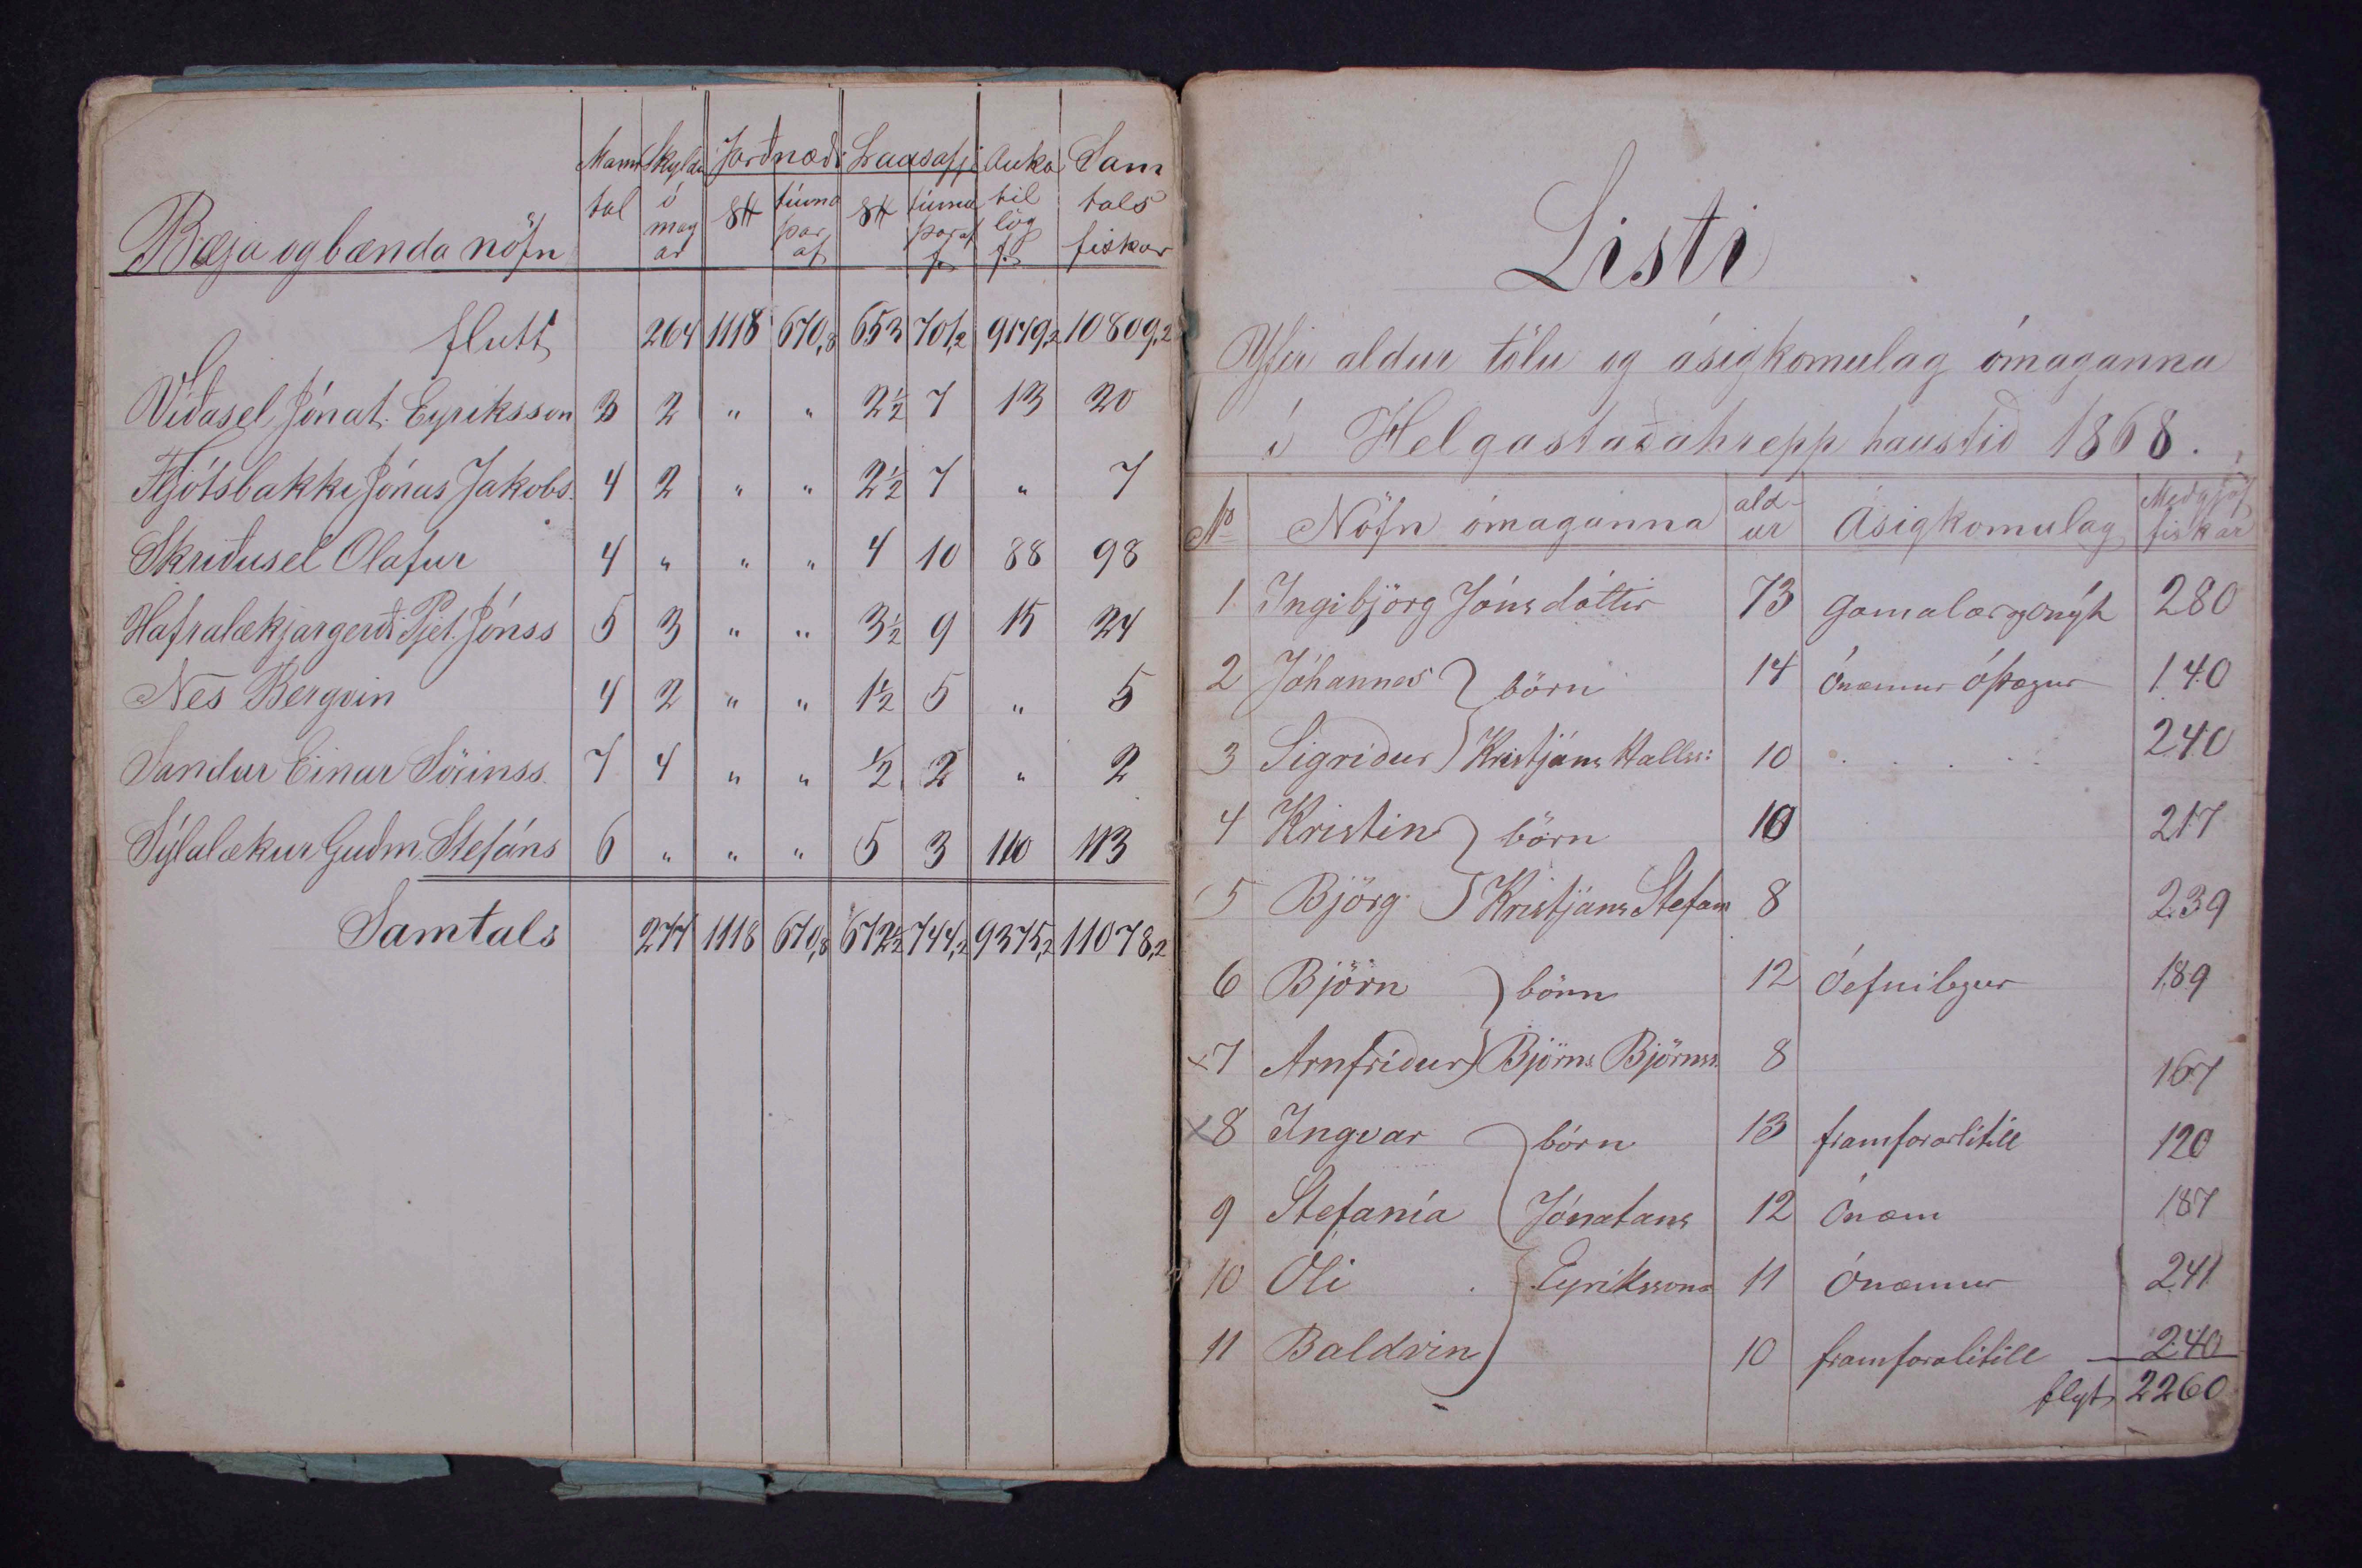 Mann Skyldu Jarðnæði Lausafje Auka Sam
tal ó tiund tiund til tals
mag þar þaraf lög fiskar
Bæja og bænda nöfn ar af f. f.
flutt 264 1118 670,8 653 701,2 9179,2 10809,2
Viðasel Jónat. Eyriksson 3 2 " " 2½ 7 13 20
Fljótsbakki Jónas Jakobs. 4 2 " " 2½ 7 " 7
Skriðusel Olafur 4 " " " 4 10 88 98
Hafralækjargerði Pjet. Jónss 5 3 " " 3½ 9 15 24
Nes Bergvin 4 2 " " 1½ 5 " 5
Sandur Einar Sörinss. 7 4 " " ½ 2 " 2
Sýlalækur Guðm. Stefáns 6 " " " 5 3 110 113
Samtals 277 1118 670,8 672½ 744,2 9375,2 11078,2
Listi
Yfir aldur tölu og ásigkomulag ómaganna
í Helgastaðahrepp haustið 1868.
No Nöfn ómaganna ald-ur Ásigkomulag Meðgjöf fiskar
1 Ingibjörg Jónsdóttir 73 280
2 Jóhannes } börn 14 Ónæmur óþægur 140
3 Sigríður } Kristjáns Hallss: 10 . . . . . 240
4 Kristín } börn 10 217
5 Björg } Kristjáns Stefáns 8 239
6 Björn } börn 12 óefnilegur 189
x7 Arnfríður } Björns Björnss. 8 167
x8 Ingvar } börn 13 framfaralitill 120
9 Stefanía } Jónatans 12 Ónæm 187
10 Óli } Eyrikssonar 11 Ónæmur 241
11 Baldvin } 10 framfaralitill 240
flyt 2260